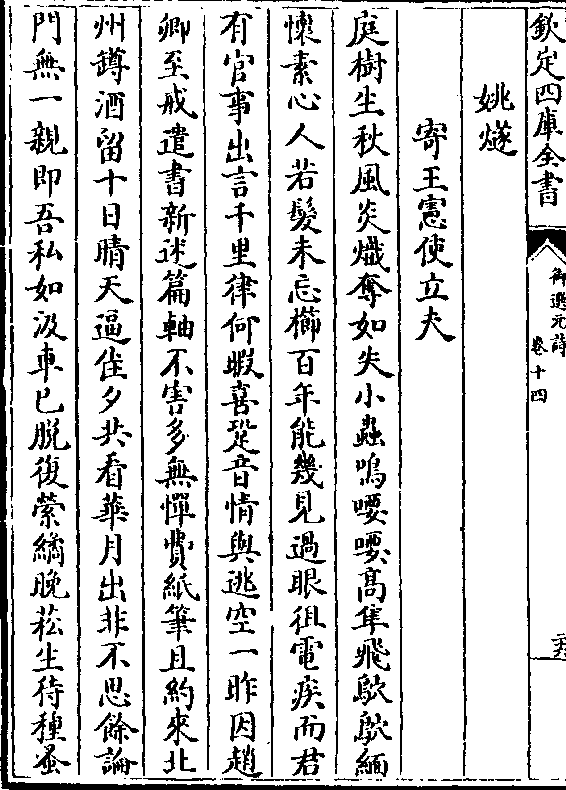 欽定四庫全書
御選元詩
卷十四
姚燧
寄王憲使立夫
庭樹生秋風炎熾奪如失小蟲鳴嘤嘤高隼飛鴥鴥緬
懷素心人若髮未忘櫛百年能幾見過眼徂電疾而君
有官事出言千里律何暇喜跫音情與逃空一昨因趙
卿至戒遣書新述篇軸不害多無憚費紙筆且約來北
州罇酒留十日晴天逼住夕共看華月出非不思餘論
門無一親即吾私如汲車已脫復縈繘晚菘生待種蚤